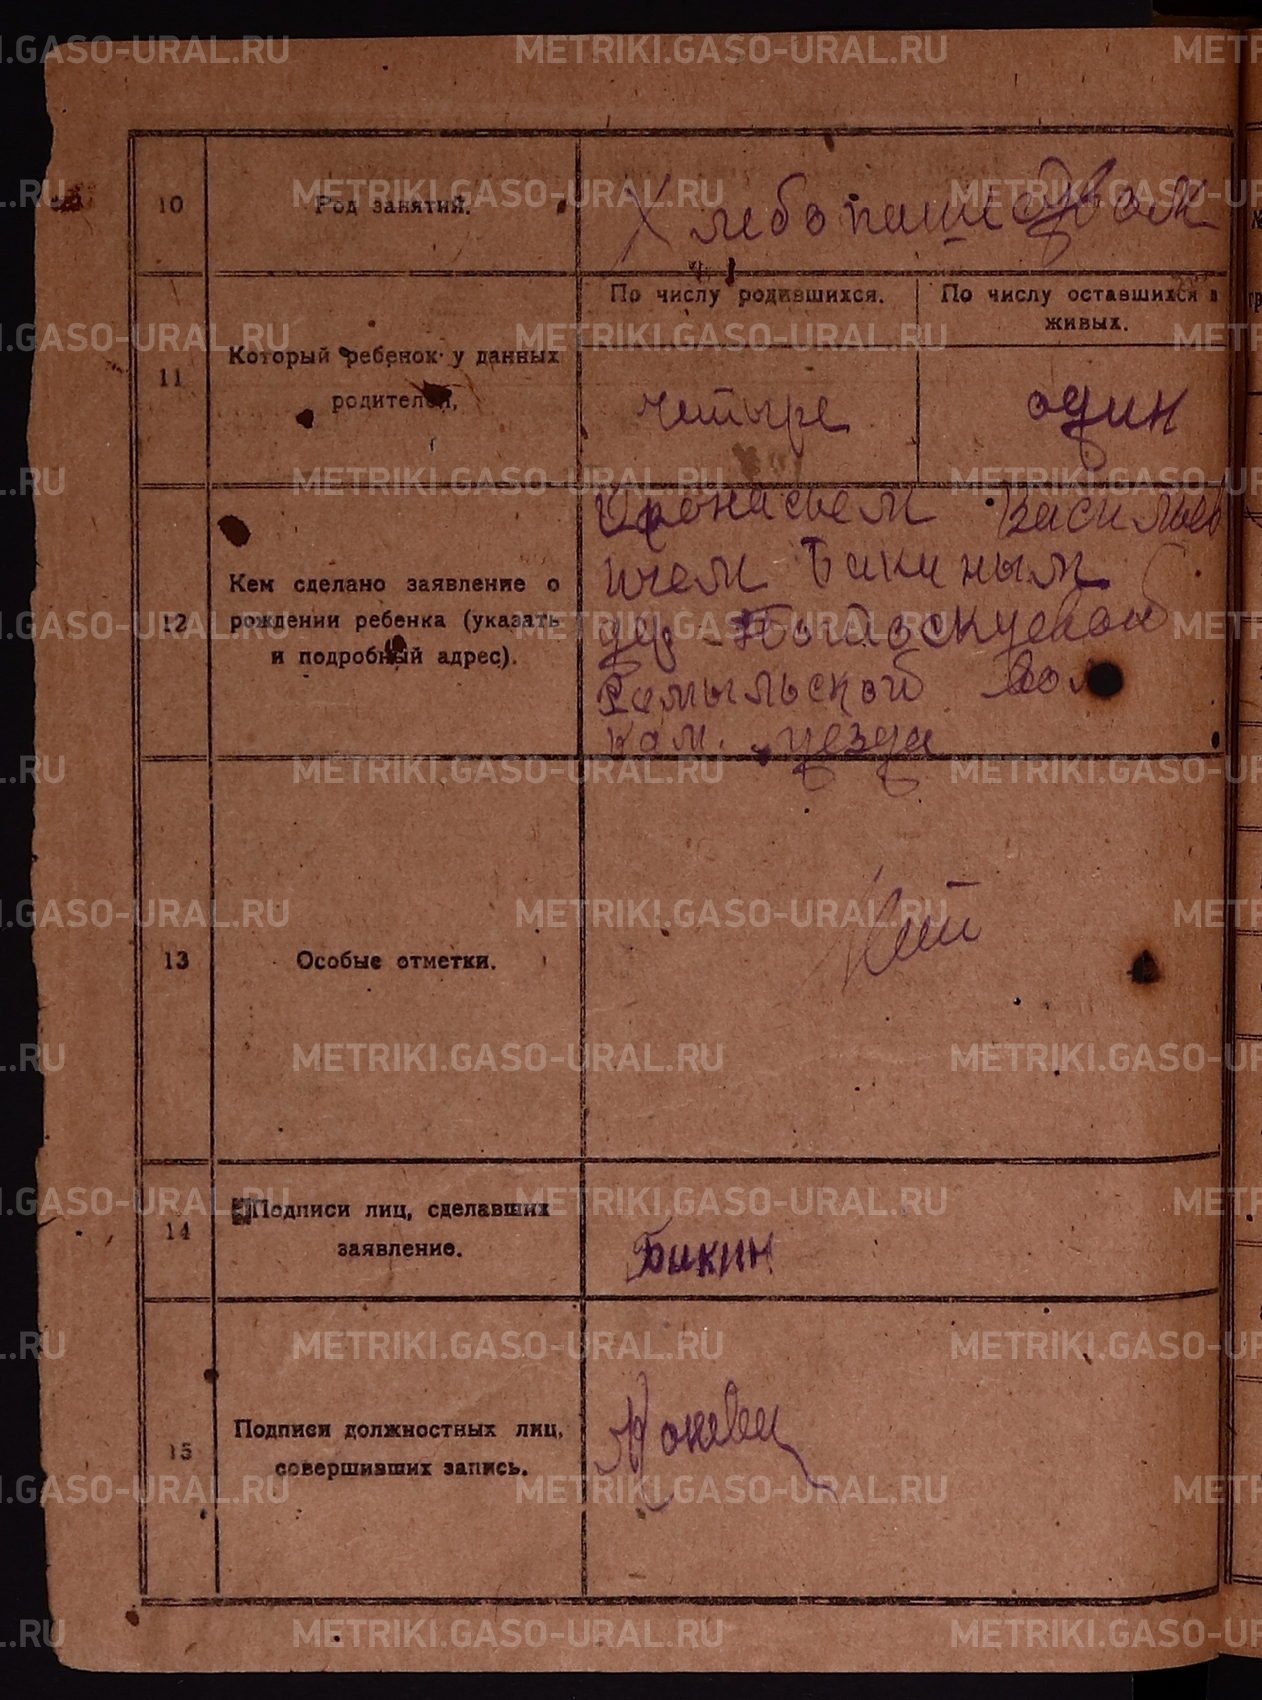 10
Род занятий.
Хлебопашедвом
11
Который ребенок у данных
родителей,
По числу родившихся.
По числу оставшихся в
живых.
четыре
один
12
Кем сделано заявление о
рождении ребенка (указать
и подробный адрес).
Офонасьем Василиев
ичем Бикиным
дер
Рамыльской вол
Кам. уезда
13
Особые отметки.
Нет
14
Подписи лиц, сделавших
заявление.
Бикин
15
Подписи должностных лиц,
совершивших запись.
METRIKI.GASO-URAL.RU